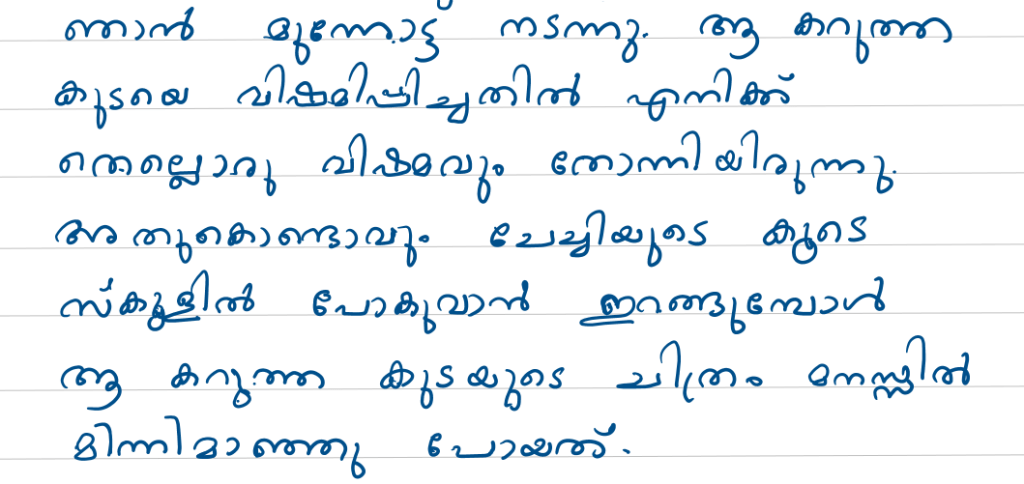 ഞാൻ മുന്നോട്ട് നടന്നു. ആ കറുത്ത
കുടയെ വിഷമിപ്പിച്ചതിൽ എനിക്ക്
തെല്ലൊരു വിഷമവും തോന്നിയിരുന്നു.
അതുകൊണ്ടാവും ചേച്ചിയുടെ കൂടെ
സ്കൂളിൽ പോകുവാൻ ഇറങ്ങുമ്പോൾ
ആ കറുത്ത കുടയുടെ ചിത്രം മനസ്സിൽ
മിന്നിമാഞ്ഞു പോയത്.